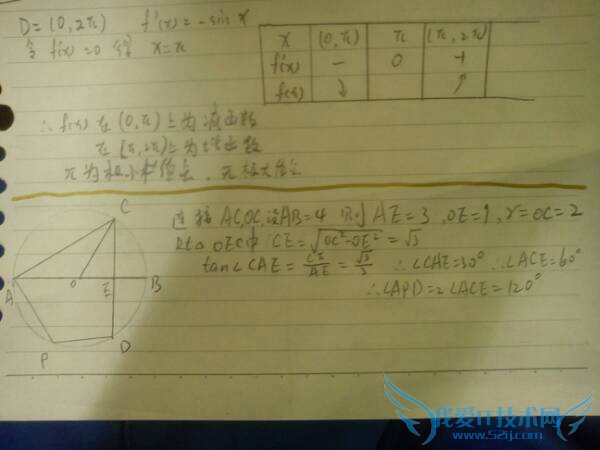 D=(0,2π) f'(x)=-sin x
令 f'(x)=0 得 x=π
x (0,π) π (π,2π)
f'(x) - 0 +
f(x) ↘ ↗
∴ f(x) 在 (0,π) 上为减函数
在 [π,2π) 上为增函数
π 为极小值点，无极大值点
连接 AC,OC,设AB=4 则 AE=3,OE=1,r=OC=2
Rt△ OEC中 CE=√(OC²-OE²)=√3
tan∠CAE=CE/AE=√3/3 ∴∠CAE=30° ∴∠ACE=60°
∴∠APD=2∠ACE=120°
A
B
C
D
E
O
P
我爱IT技术网
www.52ij.com